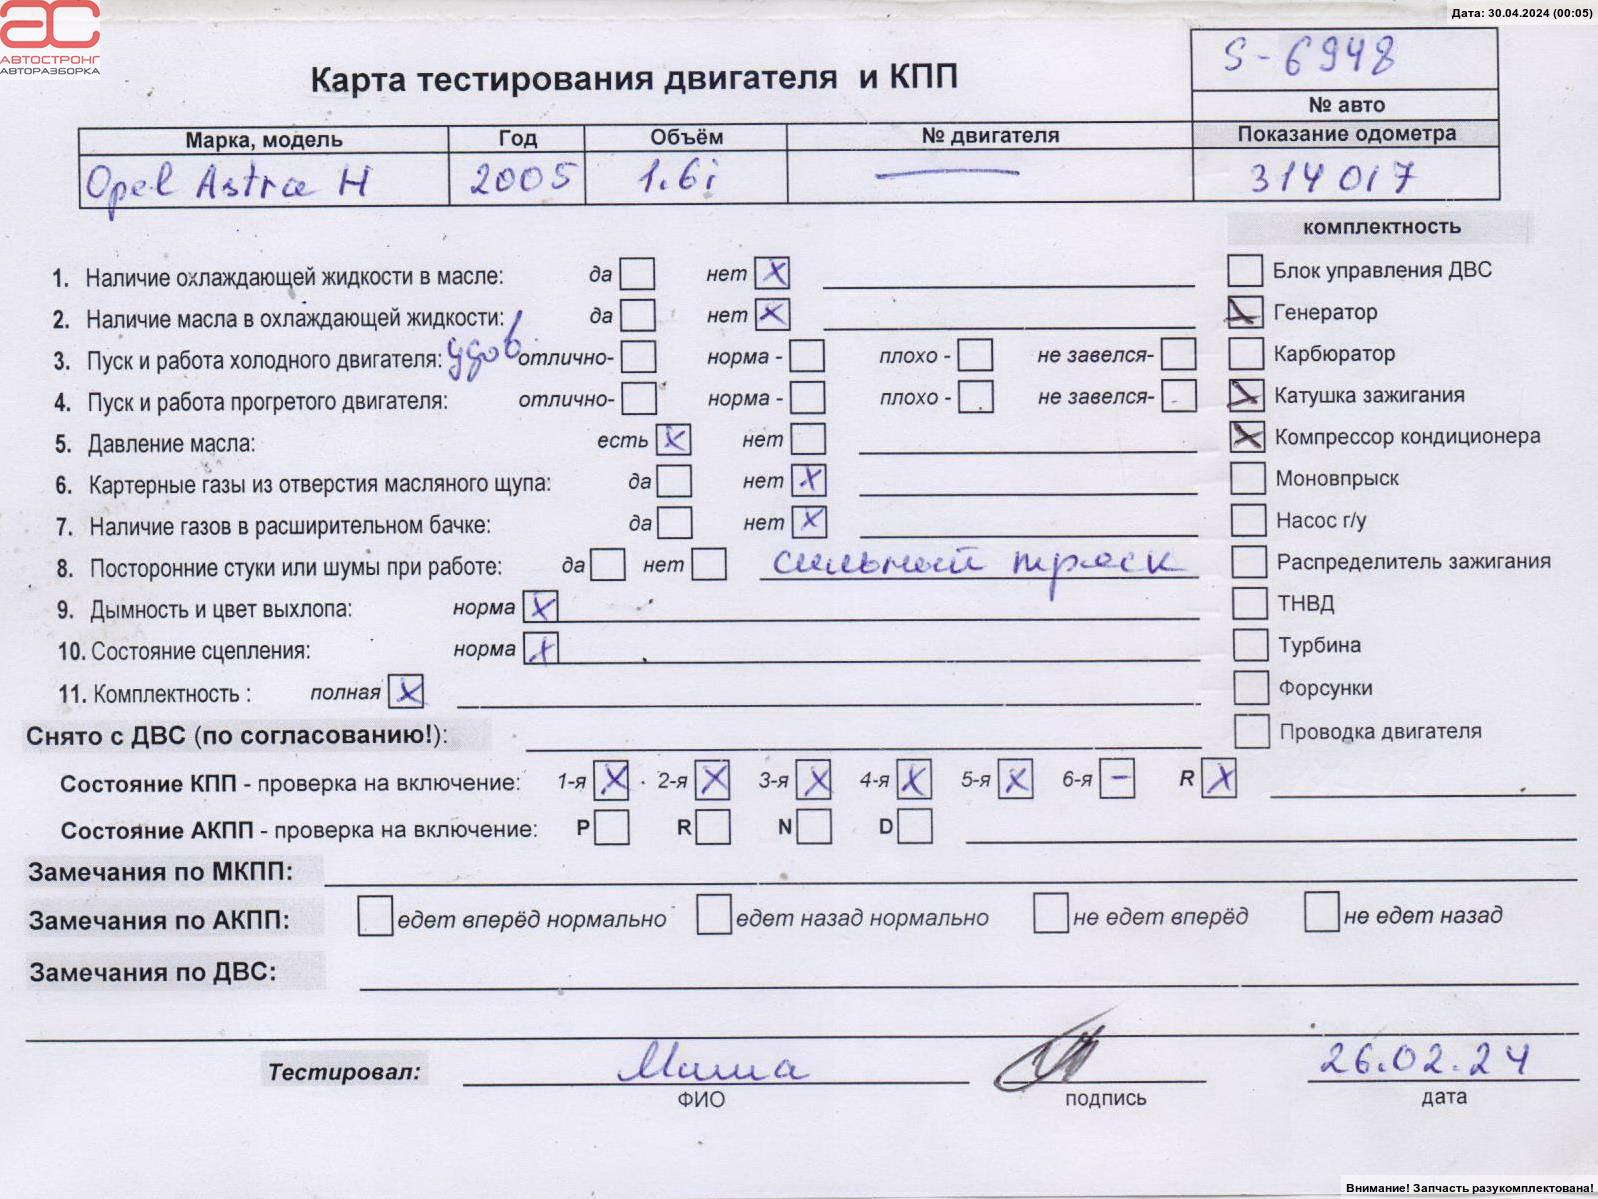 Дата: 30.04.2024 (00:05)
АС
АВТОСТРОНГ
АВТОРАЗБОРКА
Карта тестирования двигателя и КПП
S-6948
№ авто
Марка, модель Год Объём № двигателя Показание одометра
Opel Astra H 2005 1.6i — 314017
комплектность
1. Наличие охлаждающей жидкости в масле: да нет X
Блок управления ДВС
2. Наличие масла в охлаждающей жидкости: да нет X
X Генератор
3. Пуск и работа холодного двигателя: удов отлично- норма - плохо - не завелся-
Карбюратор
4. Пуск и работа прогретого двигателя: отлично- норма - плохо - не завелся-
X Катушка зажигания
5. Давление масла: есть X нет
X Компрессор кондиционера
6. Картерные газы из отверстия масляного щупа: да нет X
Моновпрыск
7. Наличие газов в расширительном бачке: да нет X
Насос г/у
8. Посторонние стуки или шумы при работе: да нет сильный треск
Распределитель зажигания
9. Дымность и цвет выхлопа: норма X
ТНВД
10. Состояние сцепления: норма X
Турбина
11. Комплектность : полная X
Форсунки
Снято с ДВС (по согласованию!):
Проводка двигателя
Состояние КПП - проверка на включение: 1-я X 2-я X 3-я X 4-я X 5-я X 6-я – R X
Состояние АКПП - проверка на включение: P R N D
Замечания по МКПП:
Замечания по АКПП: едет вперёд нормально едет назад нормально не едет вперёд не едет назад
Замечания по ДВС:
Тестировал: Миша 26.02.24
ФИО подпись дата
Внимание! Запчасть разукомплектована!